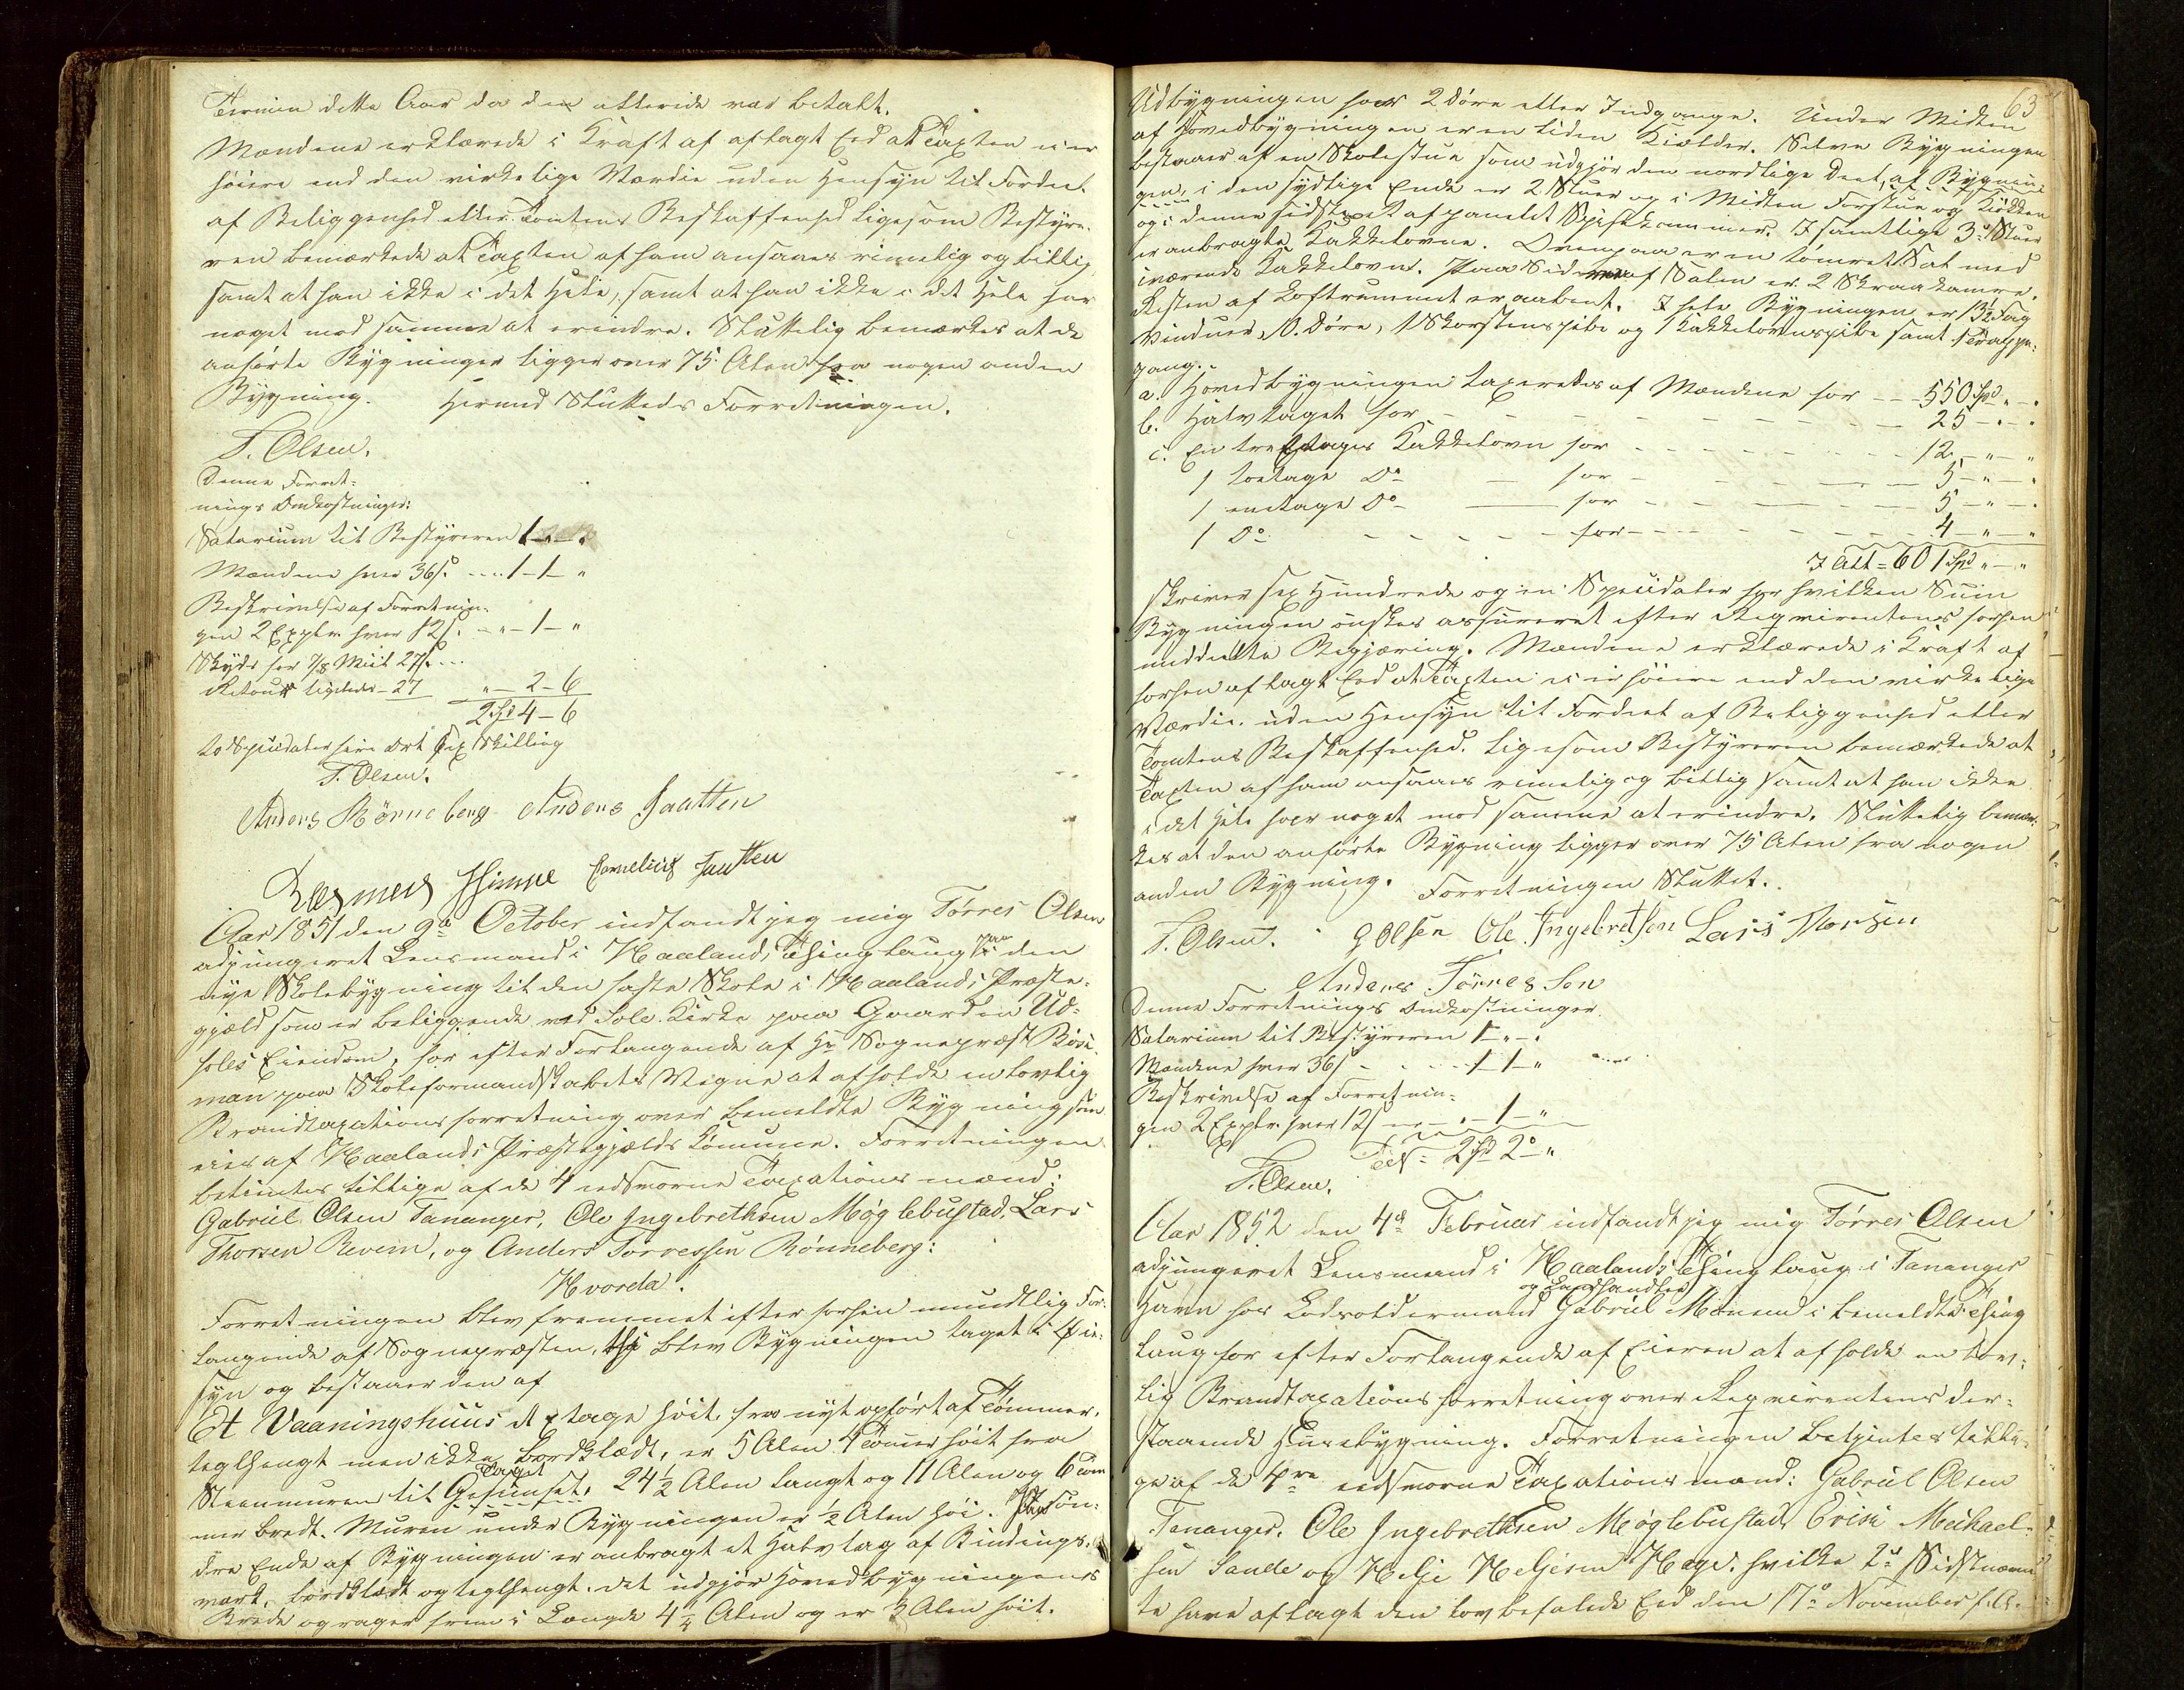 Termin dette Aar da den allerede var betalt.
Mændene erklærede i Kraft af aflagt Eed at Taxten ei er
høiere end den virkelige Værdie uden Hensyn til Fordeel
af Beliggenhed eller Tomtens Beskaffenhed ligesom Bestyre-
ren bemærkede at Taxten af ham ansaaes rimelig og billig
samt at han ikke i det Hele, samt at han ikke i det Hele har
noget mod samme at erindre. Sluttelig bemærkes at de
anførte Bygninger ligger over 75 Alen fra nogen anden
Bygning. Hermed Sluttedes Forretningen.
T. Olsen.
Denne Forret-
nings Omkostninger:
Salarium til Bestyreren 1 - " - "
Mændene hver 36 s. .... 1 - 1 - "
Beskrivelse af Forretnin-
gen 2 Exptr. hver 12 s. - " - 1 - "
Skyds for 7/8 Miil 27 s. ...
Retour ligeledes - 27 " - 2 - 6
2 Spd 4 - 6
to Speciedaler fire Ort sex Skilling
T. Olsen.
Anders Rønneberg Anders Jaatten
Rasmus Hinne Cornelius Jaatten
Aar 1851 den 9de October indfandt jeg mig Tørres Olsen
adjungeret Lensmand i Haalands Thinglaug paa den
nye Skolebygning til den faste Skole i Haalands Præste-
gjæld som er beliggende ved Sole Kirke paa Gaarden Ud-
soles Eiendom, for efter Forlangende af Hr Sognepræst
man paa Skoleformandskabets Vegne at afholde en lovlig
Brandtaxationsforretning over bemeldte Bygning som
eies af Haalands Præstegjælds Commune. Forretningen
betjentes tillige af de 4 eedsvorne Taxations mænd:
Gabriel Olsen Tananger, Ole Ingebrethsen Møglebustad, Lars
Thorsen Reveim, og Anders Tørressen Rønneberg:
Hvorda.
Forretningen blev fremmet efter forhen mundtlig For-
langende af Sognepræsten, thi blev Bygningen taget i Øie-
syn og bestaaer den af
Et Vaaningshuus et Etage høit, fra nyt opført af Tømmer,
teglhængt men ikke bordklædt, er 5 Alen 4 Tommer høit fra
Taget
Steenmuren til Gesimset, 24 1/2 Alen langt og 11 Alen og 6 Tom-
mer bredt. Muren under Bygningen er 1/2 Alen høi. Paa søn-
dre Ende af Bygningen er anbragt et Halvtag af Bindings-
værk, bordklædt og teglhængt. det udgjør Hovedbygningens
Brede og rager frem i Længde 4 1/4 Alen og er 3 Alen høit.
63
Udbygningen har 2 Døre eller Indgange. Under Midten
af Hovedbygningen er en liden Kjelder. Selve Bygningen
bestaaer af en Skolestue som udgjør den nordlige Deel af Bygnin-
gen, i den sydlige Ende er 2 Stuer og i Midten Forstue og Kjøkken
og i denne sidste et afpanelet Spisekammer. I samtlige 3de Stuer
er anbragte Kakkelovne. Ovenpaa er en tømret Sal med
iværende Kakkelovn. Paa Siderne af Salen er 2 Skraakamre.
Resten af Loftrummet er aabent. I hele Bygningen er 13 1/2 Fag
Vinduer, 10 Døre, 1 Skorsteenspibe og 1 Kakkelovnspibe samt 1 Trappe-
gang.
a. Hovedbygningen taxeredes af Mændene for --- 550 Spd " - "
b. Halvtaget for - - - - - 25 - " - "
c. En treetages Kakkelovn for - - - - 12 - " - "
1 toetage Do - for - - - 5 - " - "
1 eenetage Do - for - - - 5 - " - "
1 Do - - - - for - - - 4 - " - "
I Alt = 601 Spd " - "
skriver sex Hundrede og en Speciedaler for hvilken Sum
Bygningen ønskes assureret efter Reqvirentens forhen
meddeelte Begjæring. Mændene erklærede i Kraft af
forhen aflagt Eed at Taxten ei er høiere end den virkelige
Værdie uden Hensyn til Fordeel af Beliggenhed eller
Tomtens Beskaffenhed. Ligesom Bestyreren bemærkede at
Taxten af ham ansaaes rimelig og billig samt at han ikke
i det Hele har noget mod samme at erindre. Sluttelig bemær-
kes at den anførte Bygning ligger over 75 Alen fra nogen
anden Bygning. Forretningen Sluttet.
T. Olsen. G Olsen Ole Ingebretsen Lars Thorsen
Anders Tørres Sen
Denne Forretnings Omkostninger.
Salarium til Bestyreren 1 - " - "
Mændene hver 36 s - - - 1 - 1 - "
Beskrivelse af Forretnin-
gen 2 Exptr. hver 12 s - " - 1 - "
Tils = 2 Spd 2 - "
T. Olsen.
Aar 1852 den 4de Februar indfandt jeg mig Tørres Olsen
adjungeret Lensmand i Haalands Thinglaug i Tananger
og Landhandler
Havn hos Lodsoldermand Gabriel Monsen i bemeldte Thing
laug for efter Forlangende af Eieren at afholde en lov-
lig Brandtaxations forretning over Reqvirentens der-
staaende Huusebygning. Forretningen betjentes tilli-
ge af de 4re eedsvorne Taxations mænd: Gabriel Olsen
Tananger, Ole Ingebrethsen Møglebustad, Erik Michael-
sen Sande og Helje Heljesen Haga. hvilke 2de Sidstnævn
te have aflagt den lovbefalede Eed den 17de November f. A.